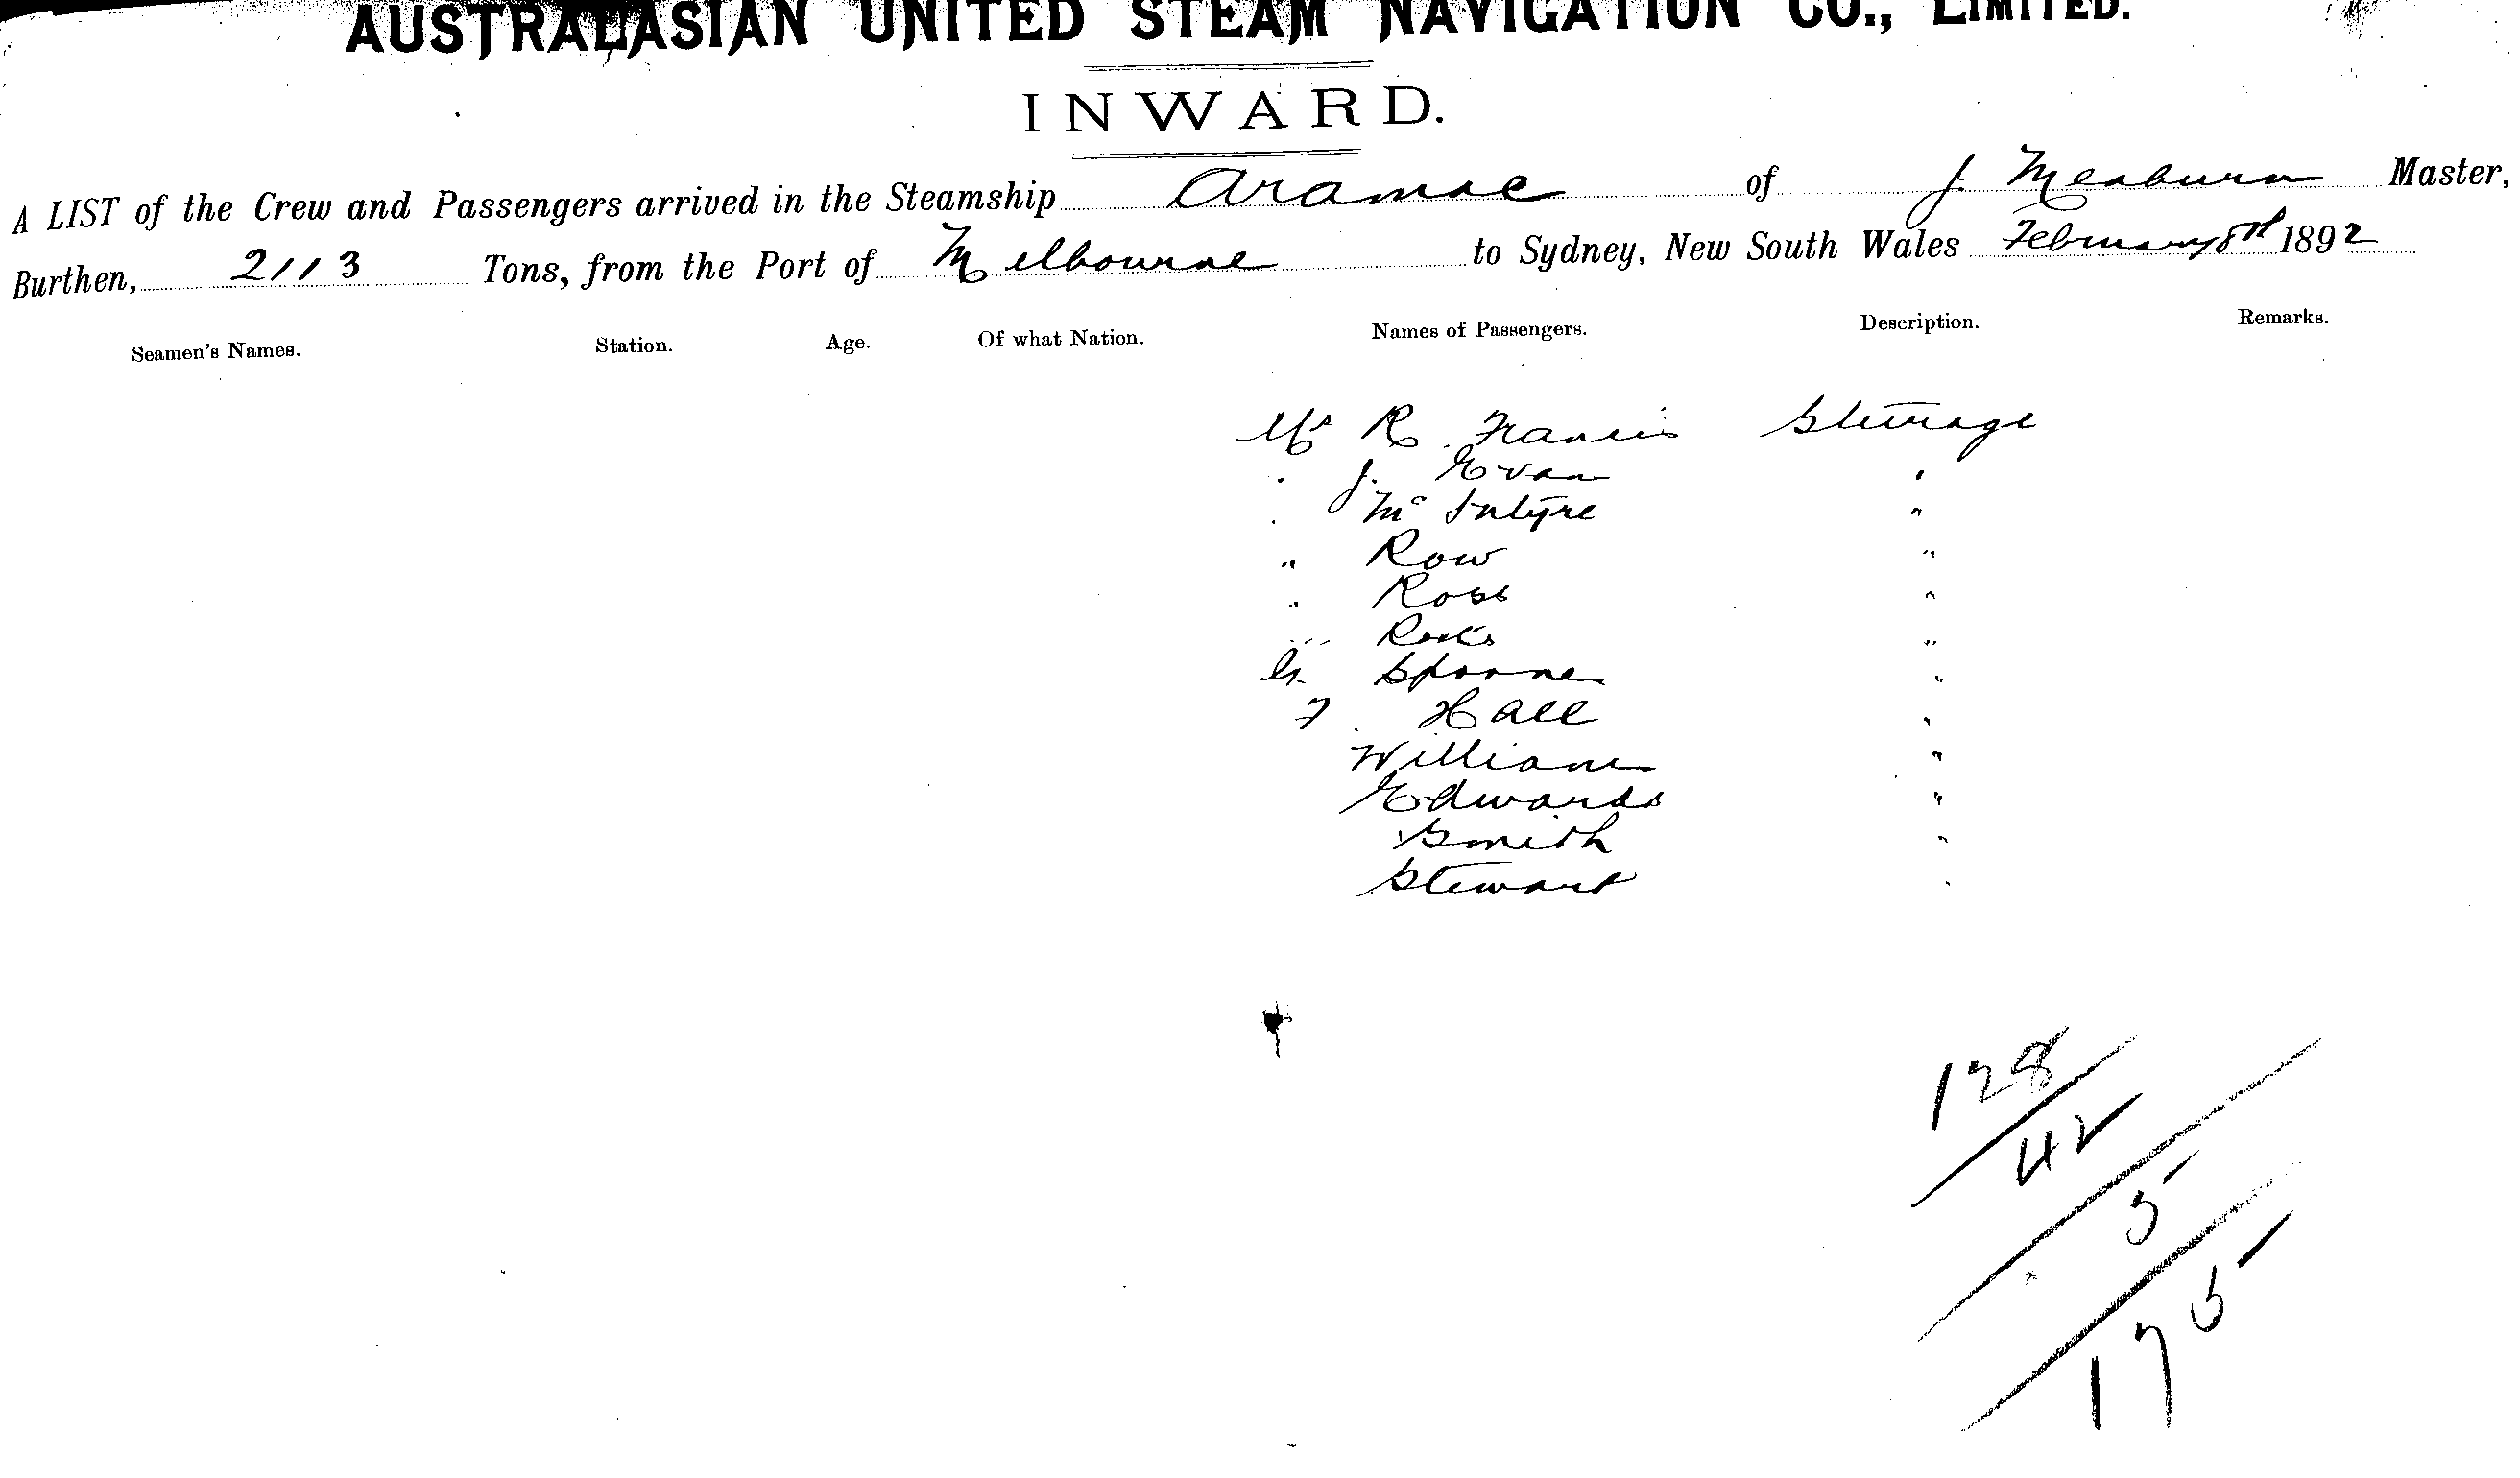 AUSTRALASIAN UNITED STEAM NAVIGATION CO., LIMITED.
INWARD.
A LIST of the Crew and Passengers arrived in the Steamship Aramac of J. Meaburn Master,
Burthen, 2113 Tons, from the Port of Melbourne to Sydney, New South Wales February 8th 1892
Seamen's Names. Station. Age. Of what Nation. Names of Passengers. Description. Remarks.
Mr R. Francis Steerage
. J. Evan "
. Mc Intyre "
" Row "
" Ross "
" "
G. Spooner "
F. Hall "
Williams "
Edwards "
Smith "
Stewart "
128
42
5
175